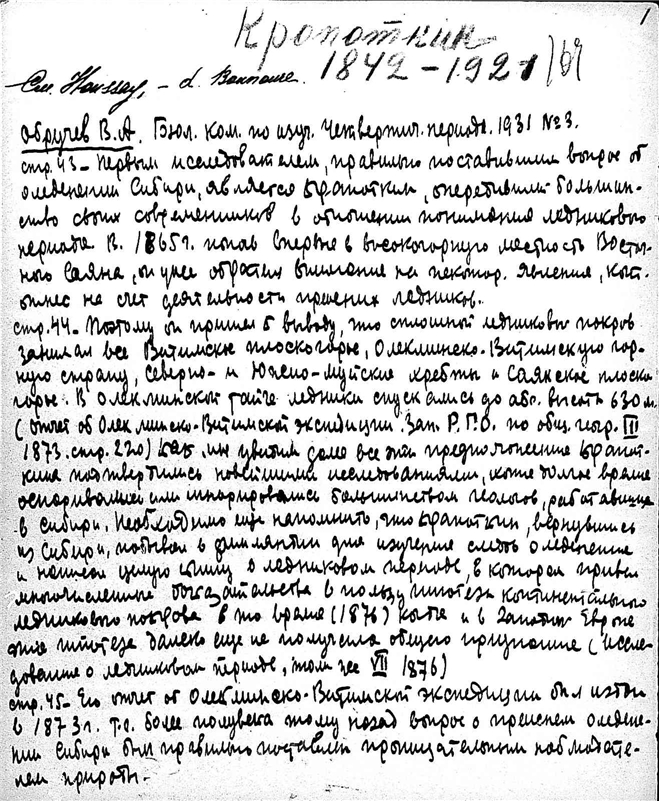 1
Кропоткин
1842 – 1921
См. Houssay, –
Обручев В.А. Бюл. ком. по изуч. Четвертич. периода. 1931 № 3.
стр. 43 – Первым исследователем, правильно поставившим вопрос об
оледенении Сибири, является Кропоткин, опередивший большин-
ство своих современников в отношении понимания ледникового
периода. В 1865 г. попав впервые в высокогорную местность Восточ-
ного Саяна, он умел обратить внимание на некотор. явления, кот.
отнес на счет деятельности прежних ледников.
стр. 44 – Поэтому он пришел к выводу, что сплошной ледниковый покров
занимал все Витимское плоскогорье, Олекминско-Витимскую гор-
ную страну, Северно- и Южно-Муйские хребты и Саянское плоско-
горье. В Олекминской тайге ледники спускались до абс. высоты 630 м.
(отчет об Олекминско-Витимской экспедиции. Зап. Р.Г.О. по общ. геогр. III
1873. стр. 220) Как мы увидим далее все эти предположения Кропот-
кина подтвердились новейшими исследованиями, хотя долгое время
оспаривались или игнорировались большинством геологов, работавших
в Сибири. Необходимо еще напомнить, что Кропоткин, вернувшись
из Сибири, побывал в Финляндии для изучения следов оледенения
и написал целую книгу о ледниковом периоде, в которой привел
многочисленные доказательства в пользу гипотезы континентального
ледникового покрова в то время (1876) когда и в Западной Европе
эта гипотеза далеко еще не получила общего признания (Иссле-
дование о ледниковом периоде, там же VII 1876)
стр. 45 – Его отчет об Олекминско-Витимской экспедиции был издан
в 1873 г. т.о. более полувека тому назад вопрос о прежнем оледене-
нии Сибири был правильно поставлен проницательным наблюдате-
лем природы.